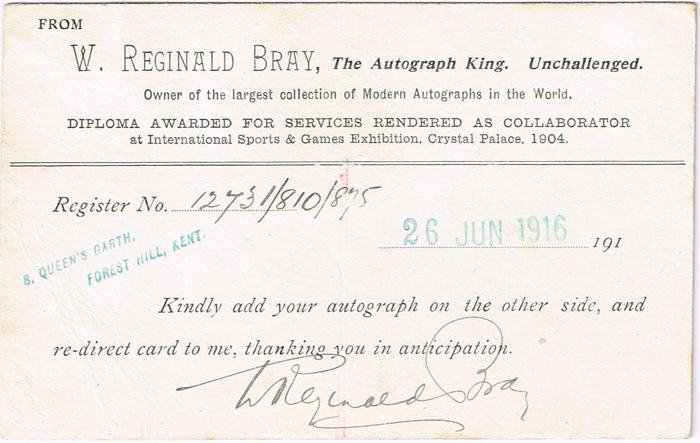 FROM
W. REGINALD BRAY, The Autograph King. Unchallenged.
Owner of the largest collection of Modern Autographs in the World.
DIPLOMA AWARDED FOR SERVICES RENDERED AS COLLABORATOR
at International Sports & Games Exhibition, Crystal Palace, 1904.
Register No. 12731/810/875
26 JUN 1916 191
8, QUEEN'S GARTH,
FOREST HILL, KENT.
Kindly add your autograph on the other side, and
re-direct card to me, thanking you in anticipation.
W Reginald Bray